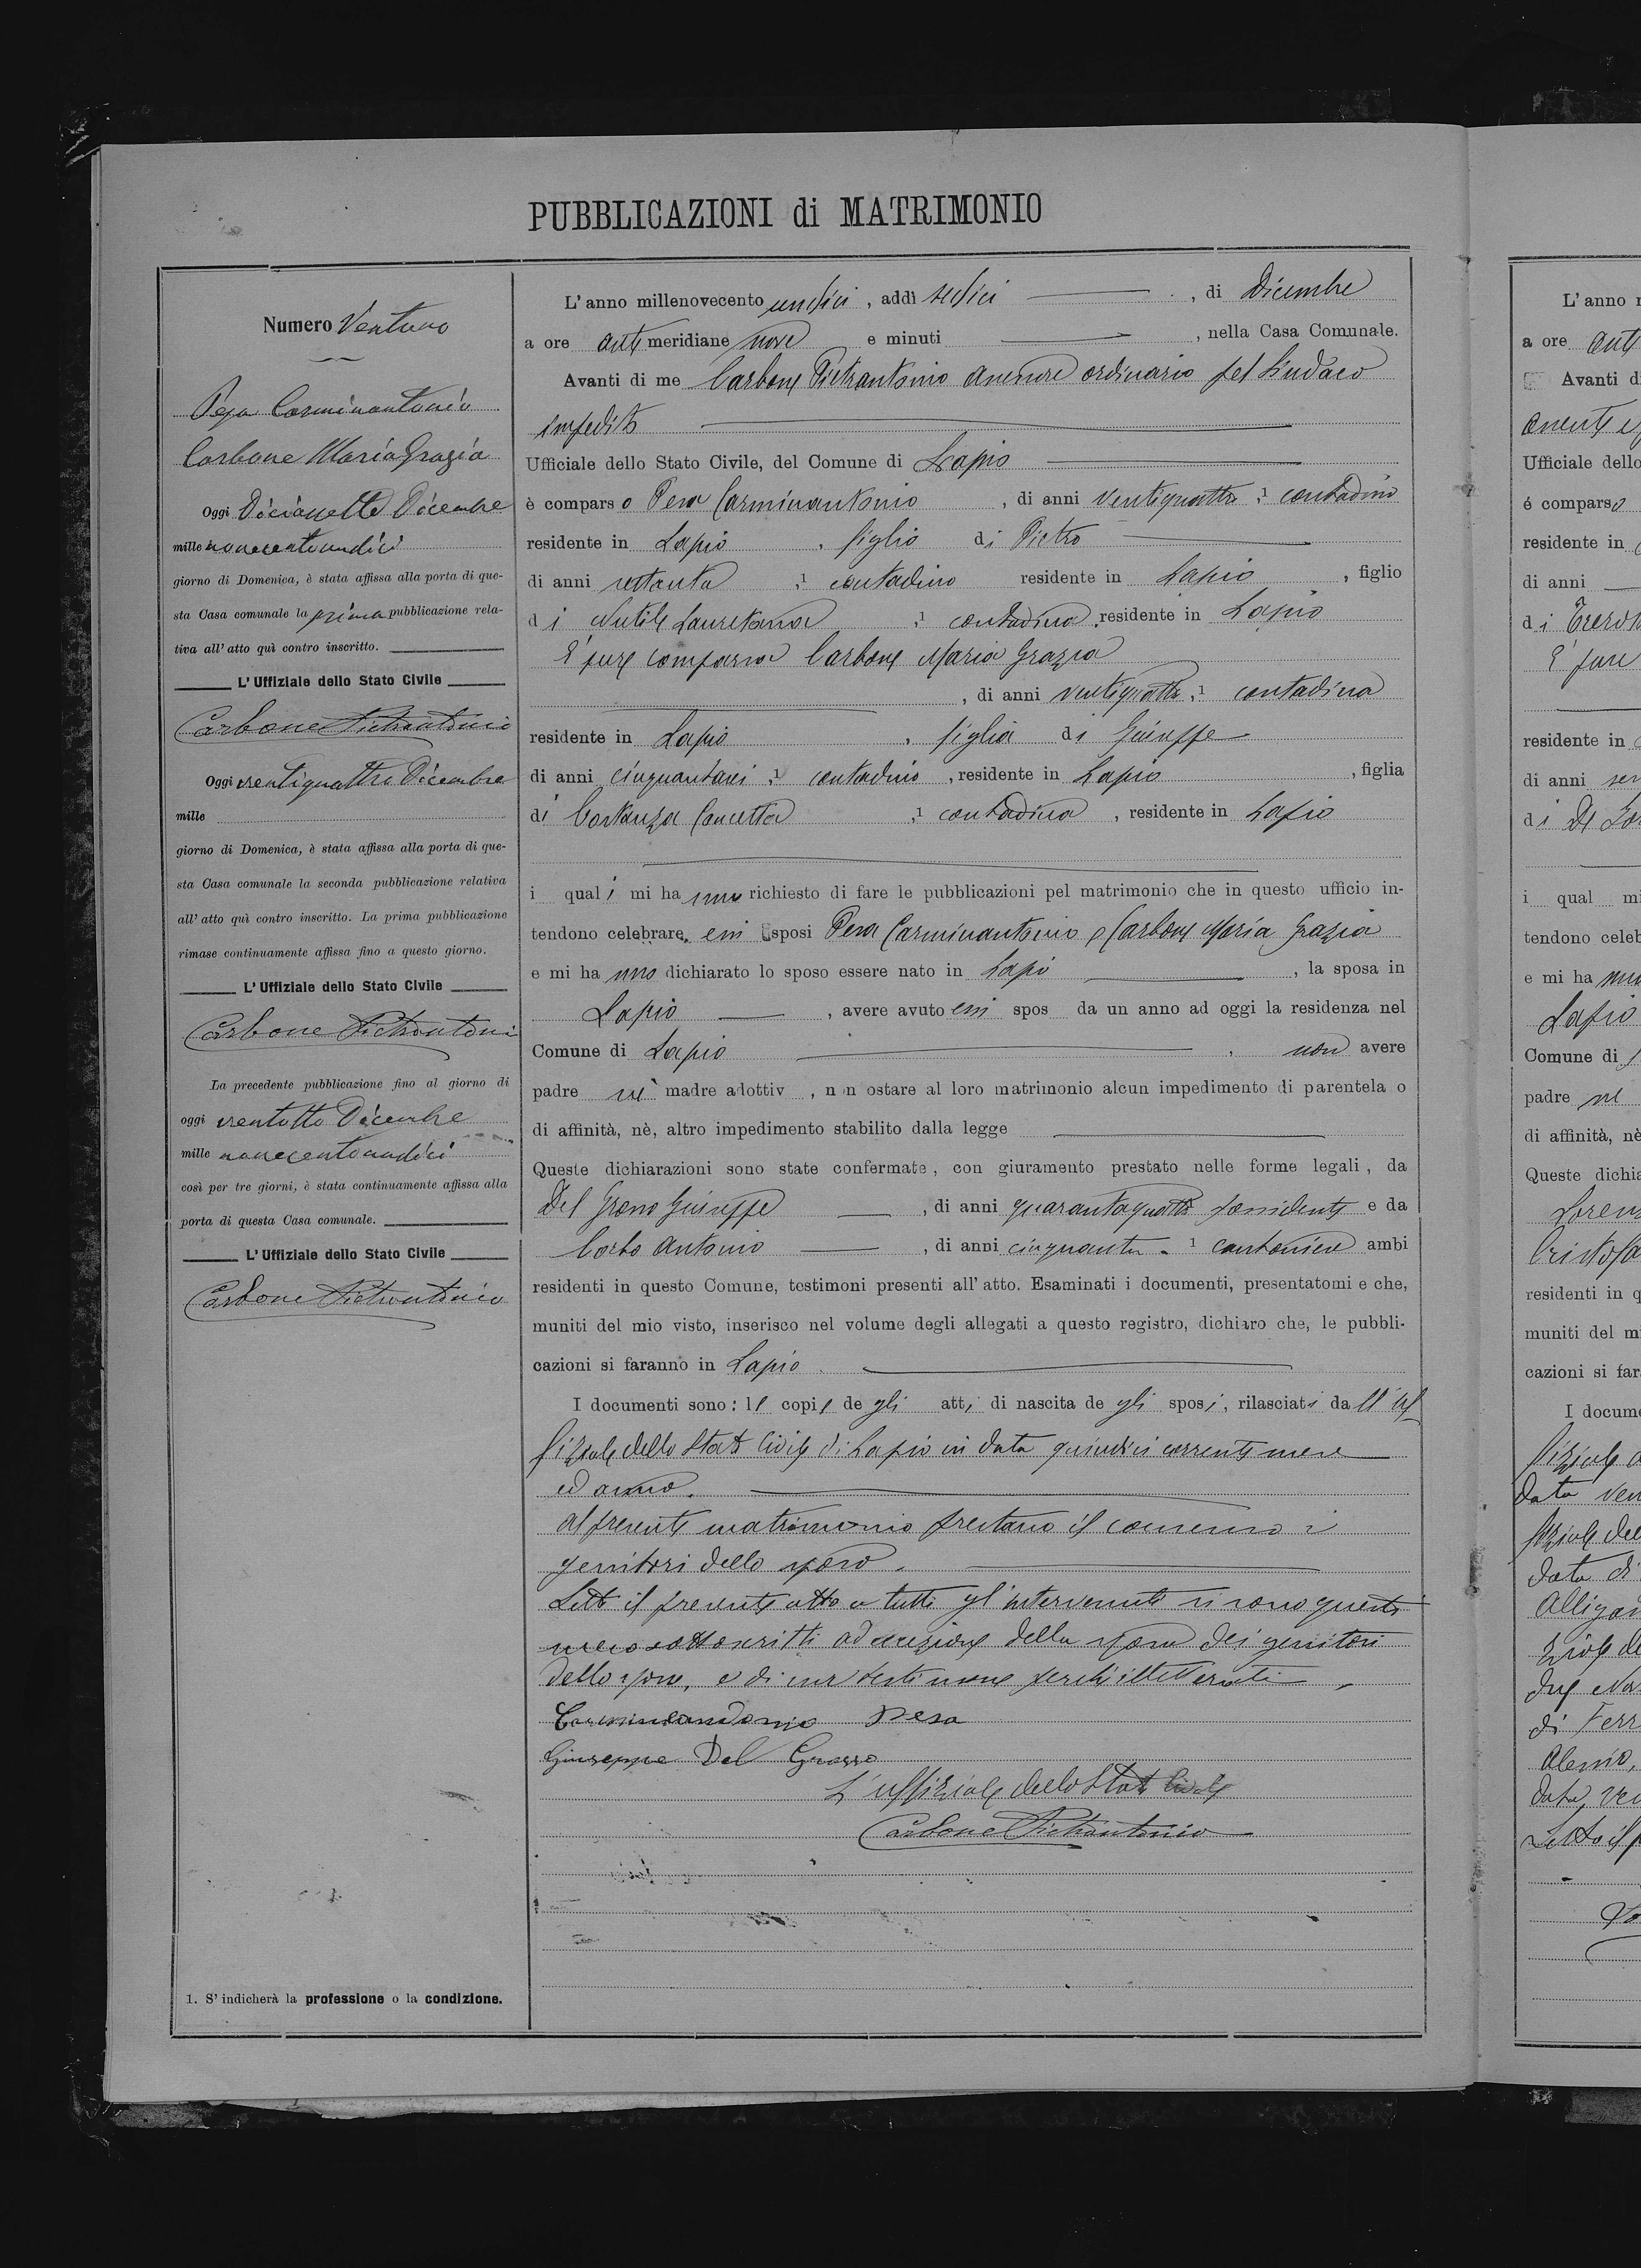 PUBBLICAZIONI di MATRIMONIO
Numero Ventuno
Pesa Carminantonio
Carbone Maria Grazia
Oggi Diciassette Dicembre
mille novecentoundici
giorno di Domenica, è stata affissa alla porta di que-
sta Casa comunale la prima pubblicazione rela-
tiva all' atto quì contro inscritto.
L' Uffiziale dello Stato Civile
Carbone Pietrantonio
Oggi ventiquattro Dicembre
mille
giorno di Domenica, è stata affissa alla porta di que-
sta Casa comunale la seconda pubblicazione relativa
all' atto quì contro inscritto. La prima pubblicazione
rimase continuamente affissa fino a questo giorno.
L' Uffiziale dello Stato Civile
Carbone Pietrantoni
La precedente pubblicazione fino al giorno di
oggi ventotto Dicembre
mille novecentoundici
così per tre giorni, è stata continuamente affissa alla
porta di questa Casa comunale.
L' Uffiziale dello Stato Civile
Carbone Pietrantonio
1. S' indicherà la professione o la condizione.
L' anno millenovecento undici, addì sedici, di Dicembre
a ore anti meridiane nove e minuti, nella Casa Comunale.
Avanti di me Carbone Pietrantonio assessore ordinario pel Sindaco
impedito
Ufficiale dello Stato Civile, del Comune di Lapio
è comparso Pesa Carminantonio, di anni ventiquattro, 1 contadino
residente in Lapio, figlio di Pietro
di anni settanta, 1 contadino residente in Lapio, figlio
di Nutile Lauretana, 1 contadina, residente in Lapio
E' pure comparsa Carbone Maria Grazia
, di anni ventiquattro, 1 contadina
residente in Lapio, figlia di Giuseppe
di anni cinquantasei, 1 contadino, residente in Lapio, figlia
di Costanza Concetta, 1 contadina, residente in Lapio
i quali mi hanno richiesto di fare le pubblicazioni pel matrimonio che in questo ufficio in-
tendono celebrare, essi sposi Pesa Carminantonio e Carbone Maria Grazia
e mi hanno dichiarato lo sposo essere nato in Lapio, la sposa in
Lapio, avere avuto essi spos da un anno ad oggi la residenza nel
Comune di Lapio, non avere
padre nè madre adottiv, non ostare al loro matrimonio alcun impedimento di parentela o
di affinità, nè, altro impedimento stabilito dalla legge
Queste dichiarazioni sono state confermate, con giuramento prestato nelle forme legali, da
Del Grosso Giuseppe, di anni quarantaquattro possidente e da
Corbo Antonio, di anni cinquanta 1 cantoniere ambi
residenti in questo Comune, testimoni presenti all' atto. Esaminati i documenti, presentatomi e che,
muniti del mio visto, inserisco nel volume degli allegati a questo registro, dichiaro che, le pubbli-
cazioni si faranno in Lapio.
I documenti sono: le copie degli atti di nascita degli sposi, rilasciati dall'Uf
fiziale dello Stato Civile di Lapio in data quindici corrente mese
ed anno.
Al presente matrimonio prestano il consenso i
genitori dello sposo.
Letto il presente atto a tutti gl'intervenuti si sono questi
meco sottoscritti ad eccezione della sposa dei genitori
dello sposo, e di un testimone perchè illetterati
Carminandonio Pesa
Giuseppe Del Grosso
L'uffiziale dello Stato Civile
Carbone Pietrantonio
L' anno
a ore
Avanti
Ufficiale dello
é comparso
residente in
di anni
di
E' pure
residente in
di anni
di
i qual mi
tendono celeb
e mi ha
Lapio
Comune di
padre
di affinità, nè
Queste dichia
residenti in
muniti del
cazioni si far
I docume